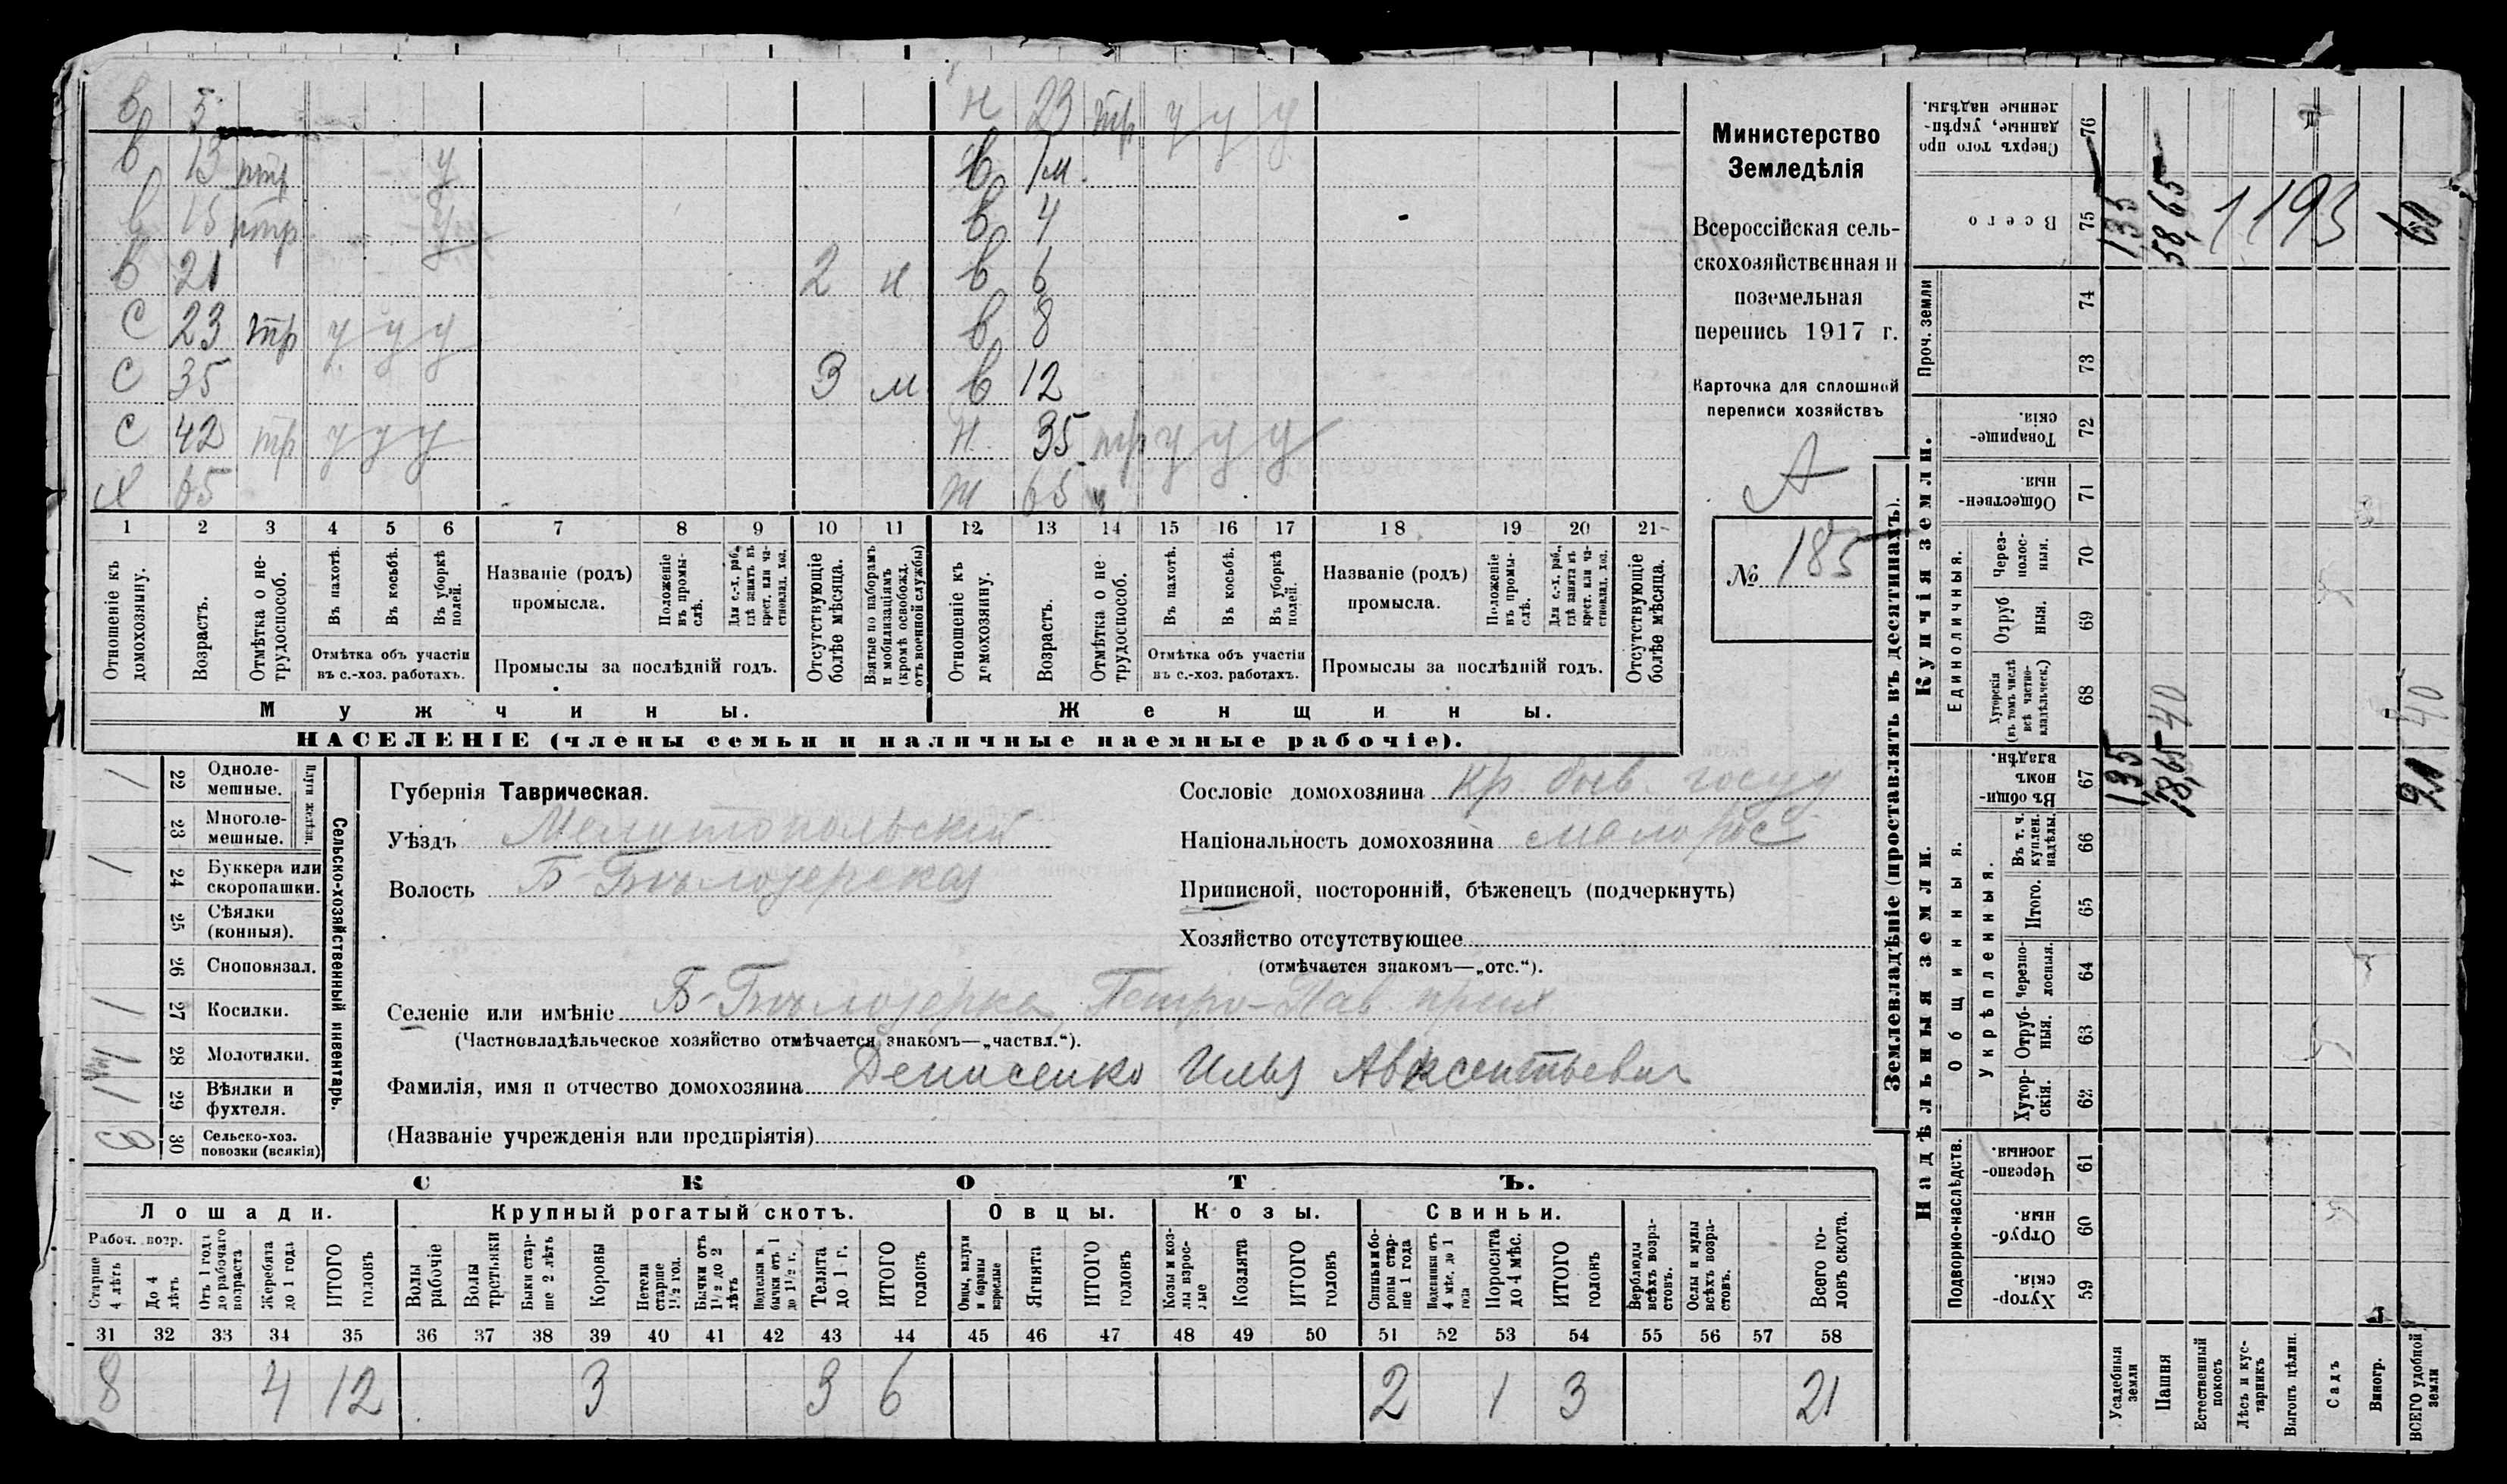 в 5 н 23 тр у у у
в 13 птр у в 1м.
в 15 птр у в 4
в 21 2 н в 6
с 23 тр у у у в 8
с 35 3 м в 12
с 42 тр у у у н. 35 тр у у у
х 65 ж 65
1 2 3 4 5 6 7 8 9 10 11 12 13 14 15 16 17 18 19 20 21
Отношеніе къ домохозяину.
Возрастъ.
Отмѣтка о нетрудоспособ.
Въ пахотѣ.
Въ косьбѣ.
Въ уборкѣ полей.
Отмѣтка объ участіи въ с.-хоз. работахъ.
Названіе (родъ) промысла.
Положеніе въ промыслѣ.
Для с.-х. раб., гдѣ занятъ въ крест. или частновлад. хоз.
Промыслы за послѣдній годъ.
Отсутствующіе болѣе мѣсяца.
Взятые по наборамъ и мобилизаціямъ (кромѣ освобожд. отъ военной службы)
Отношеніе къ домохозяину.
Возрастъ.
Отмѣтка о нетрудоспособ.
Въ пахотѣ.
Въ косьбѣ.
Въ уборкѣ полей.
Отмѣтка объ участіи въ с.-хоз. работахъ.
Названіе (родъ) промысла.
Положеніе въ промыслѣ.
Для с.-х. раб., гдѣ занята въ крест. или частновлад. хоз.
Промыслы за послѣдній годъ.
Отсутствующіе болѣе мѣсяца.
Мужчины. Женщины.
НАСЕЛЕНІЕ (члены семьи и наличные наемные рабочіе).
Министерство
Земледѣлія
Всероссійская сель-
скохозяйственная и
поземельная
перепись 1917 г.
Карточка для сплошной
переписи хозяйствъ
А
№ 185
Сельско-хозяйственный инвентарь.
Плуги желѣзн.
1 22 Одноле-мешные.
23 Многоле-мешные.
1 24 Буккера или скоропашки.
25 Сѣялки (конныя).
26 Сноповязал.
1 27 Косилки.
28 Молотилки.
1 29 Вѣялки и фухтеля.
30 Сельско-хоз. повозки (всякія)
Губернія Таврическая.
Уѣздъ Мелитопольскій
Волость Б-Бѣлозерская
Сословіе домохозяина кр. быв. госуд
Національность домохозяина малорос
Приписной, посторонній, бѣженецъ (подчеркнуть)
Хозяйство отсутствующее
(отмѣчается знакомъ—„отс.“).
Селеніе или имѣніе Б-Бѣлозерка, Петро-Пав. прих
(Частновладѣльческое хозяйство отмѣчается знакомъ—„частвл.“).
Фамилія, имя и отчество домохозяина Денисенко Илья Авксентьевич
(Названіе учрежденія или предпріятія)
СКОТЪ.
Лошади. Крупный рогатый скотъ. Овцы. Козы. Свиньи.
Рабоч. возр.
Старше 4 лѣтъ
До 4 лѣтъ
Отъ 1 года до рабочаго возраста
Жеребята до 1 года
ИТОГО головъ
Волы рабочіе
Волы третьяки
Быки старше 2 лѣтъ
Коровы
Нетели старше 1½ год.
Бычки отъ 1½ до 2 лѣтъ
Подтелки и бычки отъ 1 до 1½ г.
Телята до 1 г.
ИТОГО головъ
Овцы, валухи и бараны взрослые
Ягнята
ИТОГО головъ
Козы и козлы взрослые
Козлята
ИТОГО головъ
Свиньи и боровы старше 1 года
Подсвинки отъ 4 мѣс. до 1 года
Поросята до 4 мѣс.
ИТОГО головъ
Верблюды всѣхъ возрастовъ.
Ослы и мулы всѣхъ возрастовъ.
Всего головъ скота.
31 32 33 34 35 36 37 38 39 40 41 42 43 44 45 46 47 48 49 50 51 52 53 54 55 56 57 58
8 4 12 3 3 6 2 1 3 21
Землевладѣніе (проставлять въ десятинахъ).
Надѣльныя земли. Купчія земли. Проч. земли
Подворно-наслѣдств.
Общинныя.
Укрѣпленныя.
Единоличныя.
Хуторскія 59
Отрубныя. 60
Черезполосныя. 61
Хуторскія. 62
Отрубныя. 63
Черезполосныя. 64
Итого. 65
Въ т. ч. куплен. надѣлы. 66
Въ общинномъ владѣн. 67
Хуторскія (въ томъ числѣ всѣ частновладѣльческ.) 68
Отрубныя. 69
Черезполосныя. 70
Общественныя. 71
Товарищескія. 72
73
74
Всего 75
Сверхъ того проданные, укрѣпленные надѣлы. 76
Усадебныя земли 135 135
Пашня 18,65 40 58,65
Естественный покосъ
Лѣсъ и кустарникъ
Выгонъ цѣлин.
Садъ
Виногр.
ВСЕГО удобной земли 40 60
1193